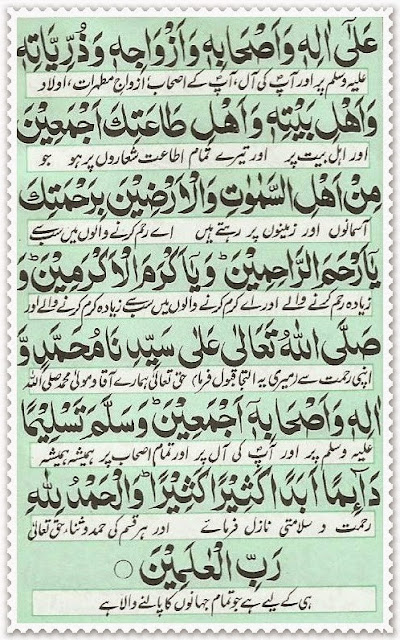 عَلٰٓى اٰلِهٖ وَاَصْحَابِهٖ وَاَزْوَاجِهٖ وَذُرِّيَّاتِهٖ
علیہ وسلم پر اور آپؐ کی آل، آپؐ کے اصحاب، ازواج مطہرات، اولاد
وَاَهْلِ بَيْتِهٖ وَاَهْلِ طَاعَتِكَ اَجْمَعِيْنَ
اور اہل بیت پر اور تیرے تمام اطاعت شعاروں پر ہو جو
مِنْ اَهْلِ السَّمٰوٰتِ وَالْاَرْضِيْنَ بِرَحْمَتِكَ
آسمانوں اور زمینوں پر رہتے ہیں اے رحم کرنے والوں میں سب سے
يَا اَرْحَمَ الرَّاحِمِيْنَ وَيَا اَكْرَمَ الْاَكْرَمِيْنَ وَ
زیادہ رحم کرنے والے اور اے کرم کرنے والوں میں سب سے زیادہ کرم کرنے والے اور
صَلَّى اللهُ تَعَالٰى عَلٰى سَيِّدِنَا مُحَمَّدٍ وَّ
اپنی رحمت سے (میری یہ التجا قبول فرما) حق تعالیٰ ہمارے آقا و مولیٰ محمد صلی اللہ
اٰلِهٖ وَاَصْحَابِهٖٓ اَجْمَعِيْنَ وَسَلَّمَ تَسْلِيْمًا
علیہ وسلم پر اور آپؐ کی آل پر اور تمام اصحاب پر ہمیشہ ہمیشہ
دَآئِمًا اَبَدًا كَثِيْرًا كَثِيْرًا ؕ وَالْحَمْدُ لِلّٰهِ
رحمت و سلامتی نازل فرمائے اور ہر قسم کی حمد و ثناء حق تعالیٰ
رَبِّ الْعٰلَمِيْنَ ○
ہی کے لیے ہے جو تمام جہانوں کا پالنے والا ہے